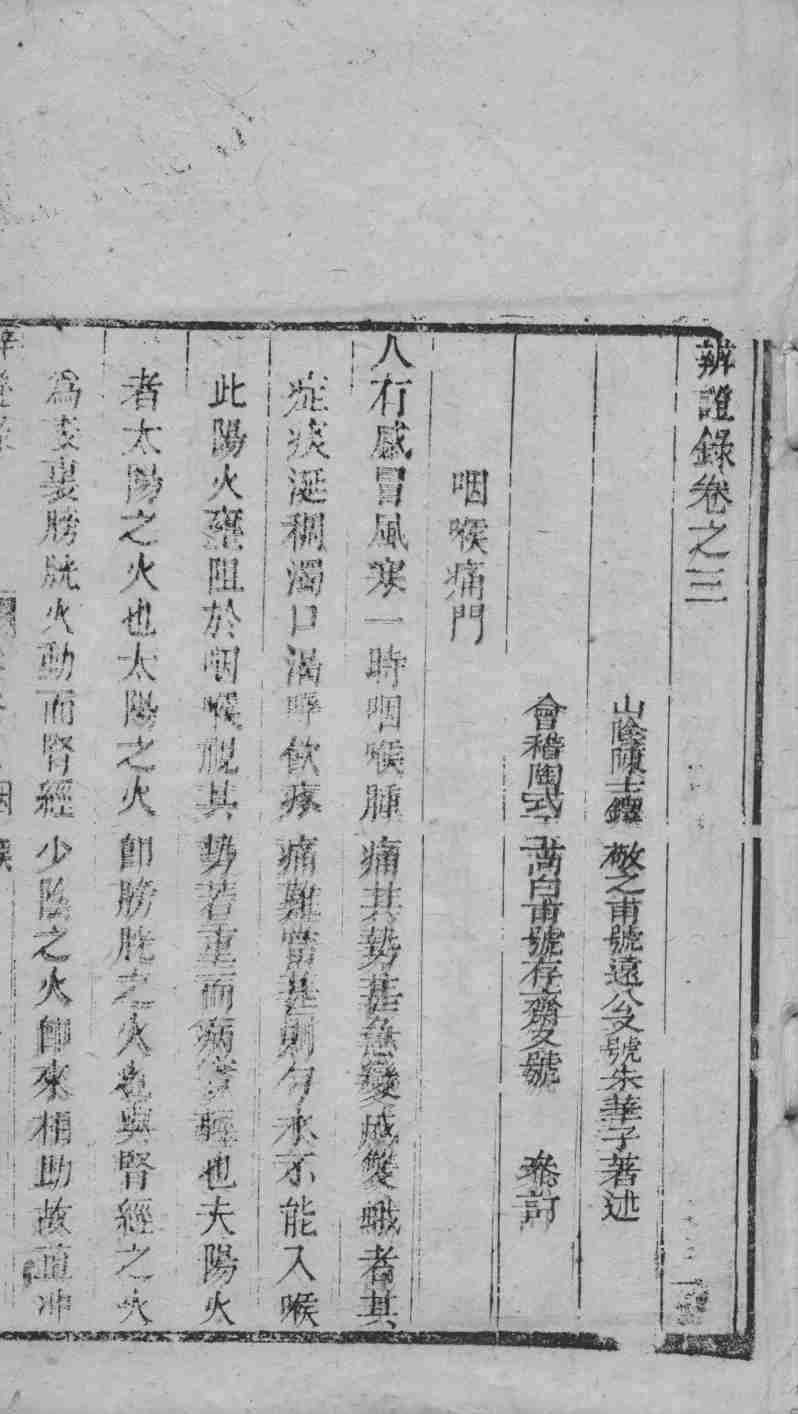 辨證錄卷之三
山陰陳士鐸敬之甫號遠公又號朱華子著述
會稽陶式玉尚白甫號存齋又號 叅訂
咽喉痛門
人有感冒風寒一時咽喉腫痛其勢甚急變成雙蛾者其
症痰涎稠濁口渴呼飲疼痛難當甚則勺水不能入喉
此陽火壅阻於咽喉視其勢若重而病實輕也夫陽火
者太陽之火也太陽之火卽膀胱之火也與腎經之火
為表裏膀胱火動而腎經少陰之火卽來相助故直冲